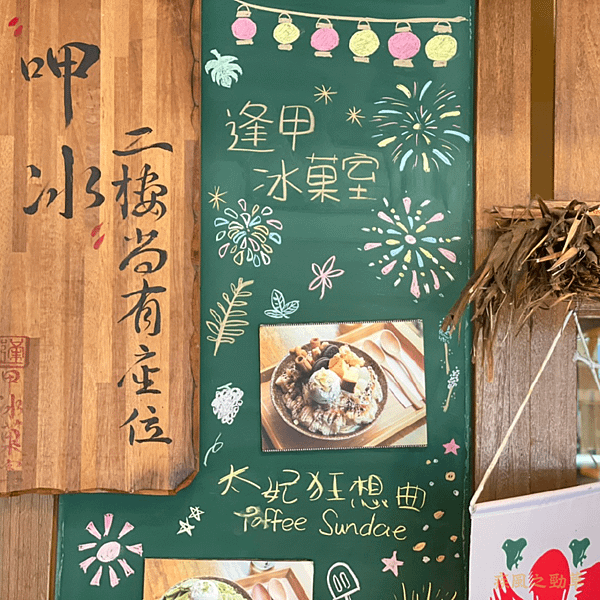 呷
冰
二樓尚有座位
逢甲
冰菓室
太妃狂想曲
Toffee Sundae